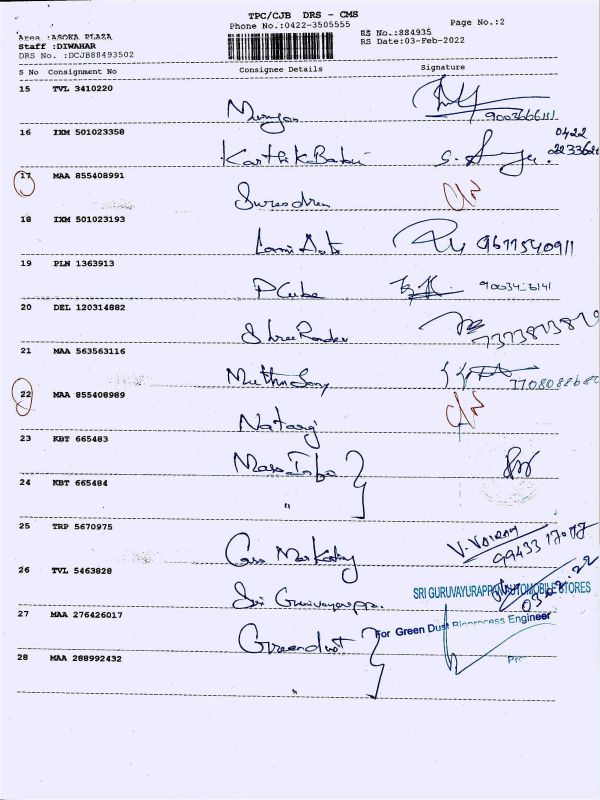 TPC/CJB DRS - CMS
Phone No.:0422-3505555
Page No.:2
Area :ASOKA PLAZA
Staff :DIWAHAR
DRS No. :DCJB88493502
RS No.:884935
RS Date:03-Feb-2022
S No Consignment No Consignee Details Signature
15 TVL 3410220
Murugan 9003666111
16 IXM 501023358
Karthik Babu 0422
17 MAA 855408991
Surendren C/N
18 IXM 501023193
9611540911
19 PLN 1363913
P Cube
20 DEL 120314882
Shree
21 MAA 563563116
22 MAA 855408989
Nataraj C/N
23 KBT 665483
24 KBT 665484
"
25 TRP 5670975
V. VAIRAM
99433 17017
26 TVL 5463828
Sri Guruvayurappa
SRI GURUVAYURAPPA AUTOMOBILE STORES
03.02.22
27 MAA 276426017
Greendust
For Green Dust Bioprocess Engineer
28 MAA 288992432
"